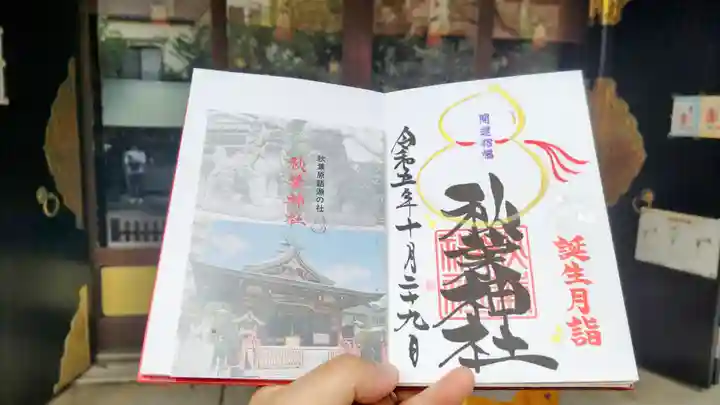 開運招福
秋葉神社
誕生月詣
令和五年十月二十九日
秋葉原語源の社
秋葉神社